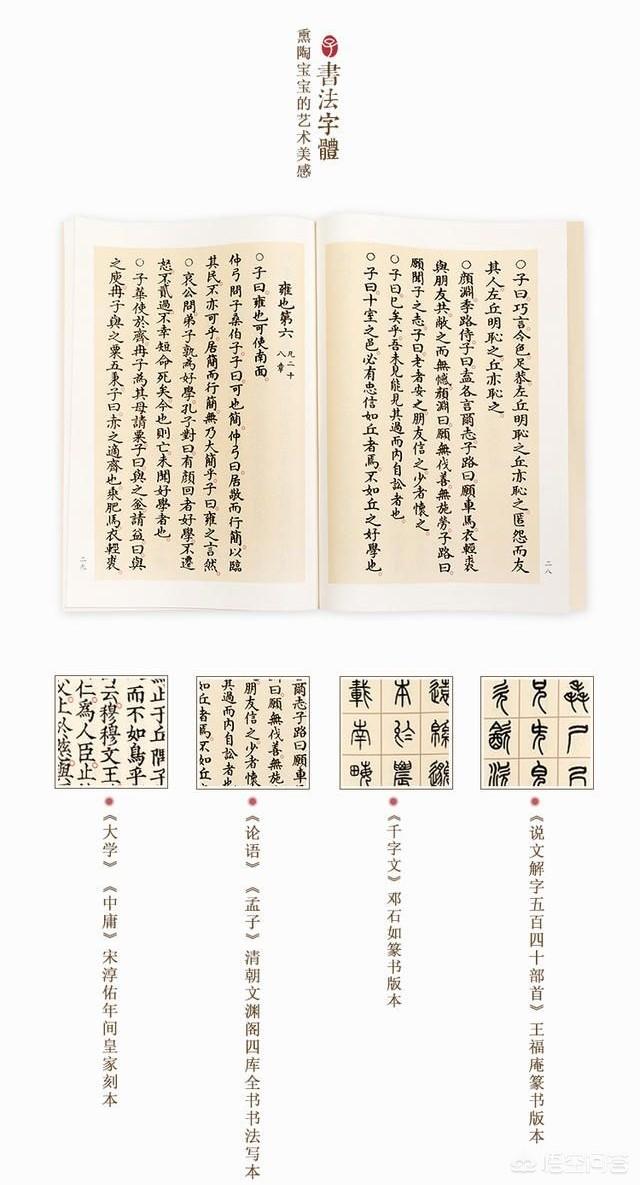 書法字體
熏陶宝宝的艺术美感
○子曰巧言令色足恭左丘明恥之丘亦恥之匿怨而友
其人左丘明恥之丘亦恥之
○顏淵季路侍子曰盍各言爾志子路曰願車馬衣輕裘
與朋友共敝之而無憾顏淵曰願無伐善無施勞子路曰
願聞子之志子曰老者安之朋友信之少者懷之
○子曰已矣乎吾未見能見其過而內自訟者也
○子曰十室之邑必有忠信如丘者焉不如丘之好學也
二八
雍也第六 凡二十八章
○子曰雍也可使南面
仲弓問子桑伯子子曰可也簡仲弓曰居敬而行簡以臨
其民不亦可乎居簡而行簡無乃大簡乎子曰雍之言然
○哀公問弟子孰為好學孔子對曰有顏回者好學不遷
怒不貳過不幸短命死矣今也則亡未聞好學者也
○子華使於齊冉子為其母請粟子曰與之釜請益曰與
之庾冉子與之粟五秉子曰赤之適齊也乘肥馬衣輕裘
二九
而不如鳥乎
云穆穆文王
仁爲人臣止
爾志子路曰願車
曰願無伐善無施
朋友信之少者懷
其過而內自訟者也
如丘者焉不如丘
遠緜邈
本於農
載南畝
《说文解字五百四十部首》王福庵篆书版本
《千字文》邓石如篆书版本
《论语》《孟子》清朝文渊阁四库全书书法写本
《大学》《中庸》宋淳佑年间皇家刻本
悟空问答